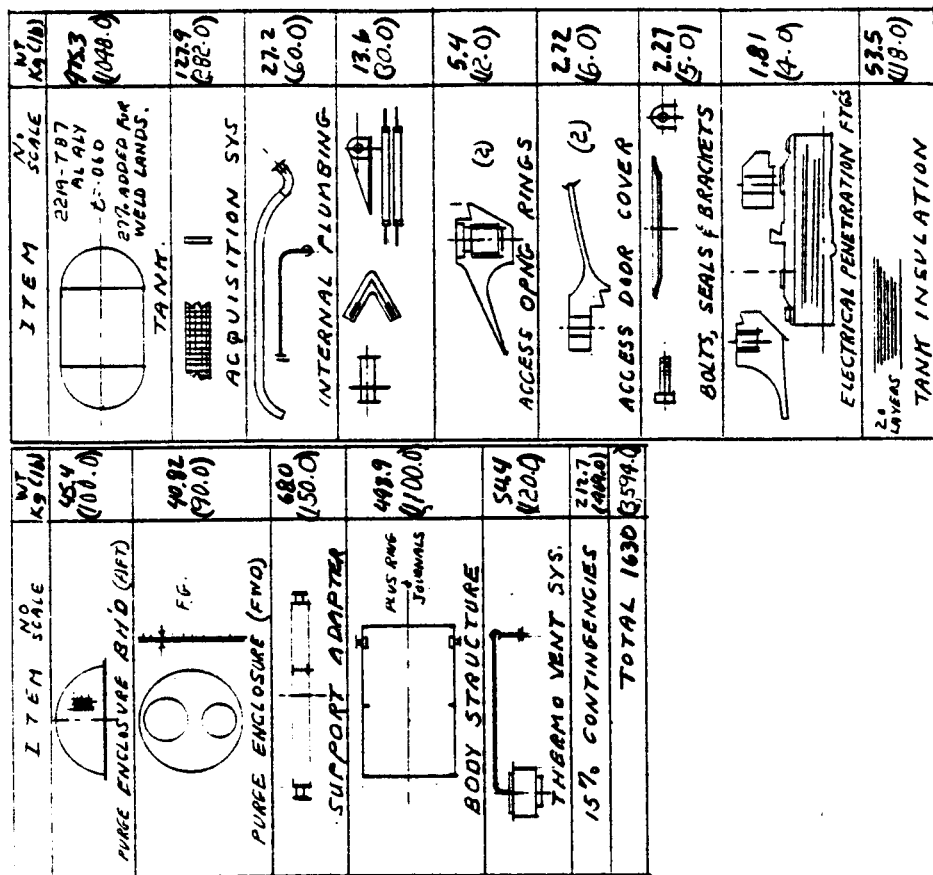 ITEM NO SCALE
WT Kg (lb)
2219-T87
AL ALY
t=.060
27% ADDED FOR
WELD LANDS.
TANK
475.3
(1048.0)
ACQUISITION SYS
127.9
(282.0)
INTERNAL PLUMBING
27.2
(60.0)
13.6
(30.0)
(2)
ACCESS OPNG RINGS
5.4
(12.0)
(2)
ACCESS DOOR COVER
2.72
(6.0)
BOLTS, SEALS & BRACKETS
2.27
(5.0)
ELECTRICAL PENETRATION FTGS
1.81
(4.0)
20
LAYERS
TANK INSULATION
53.5
(118.0)
ITEM NO SCALE
WT
Kg (lb)
PURGE ENCLOSURE BH'D (AFT)
45.4
(100.0)
F.G.
PURGE ENCLOSURE (FWD)
40.82
(90.0)
SUPPORT ADAPTER
68.0
(150.0)
PLUS RING
+
JOURNALS
BODY STRUCTURE
498.9
(1100.0)
THERMO VENT SYS.
54.4
(120.0)
15% CONTINGENCIES
212.7
(469.0)
TOTAL 1630 (3594.0)